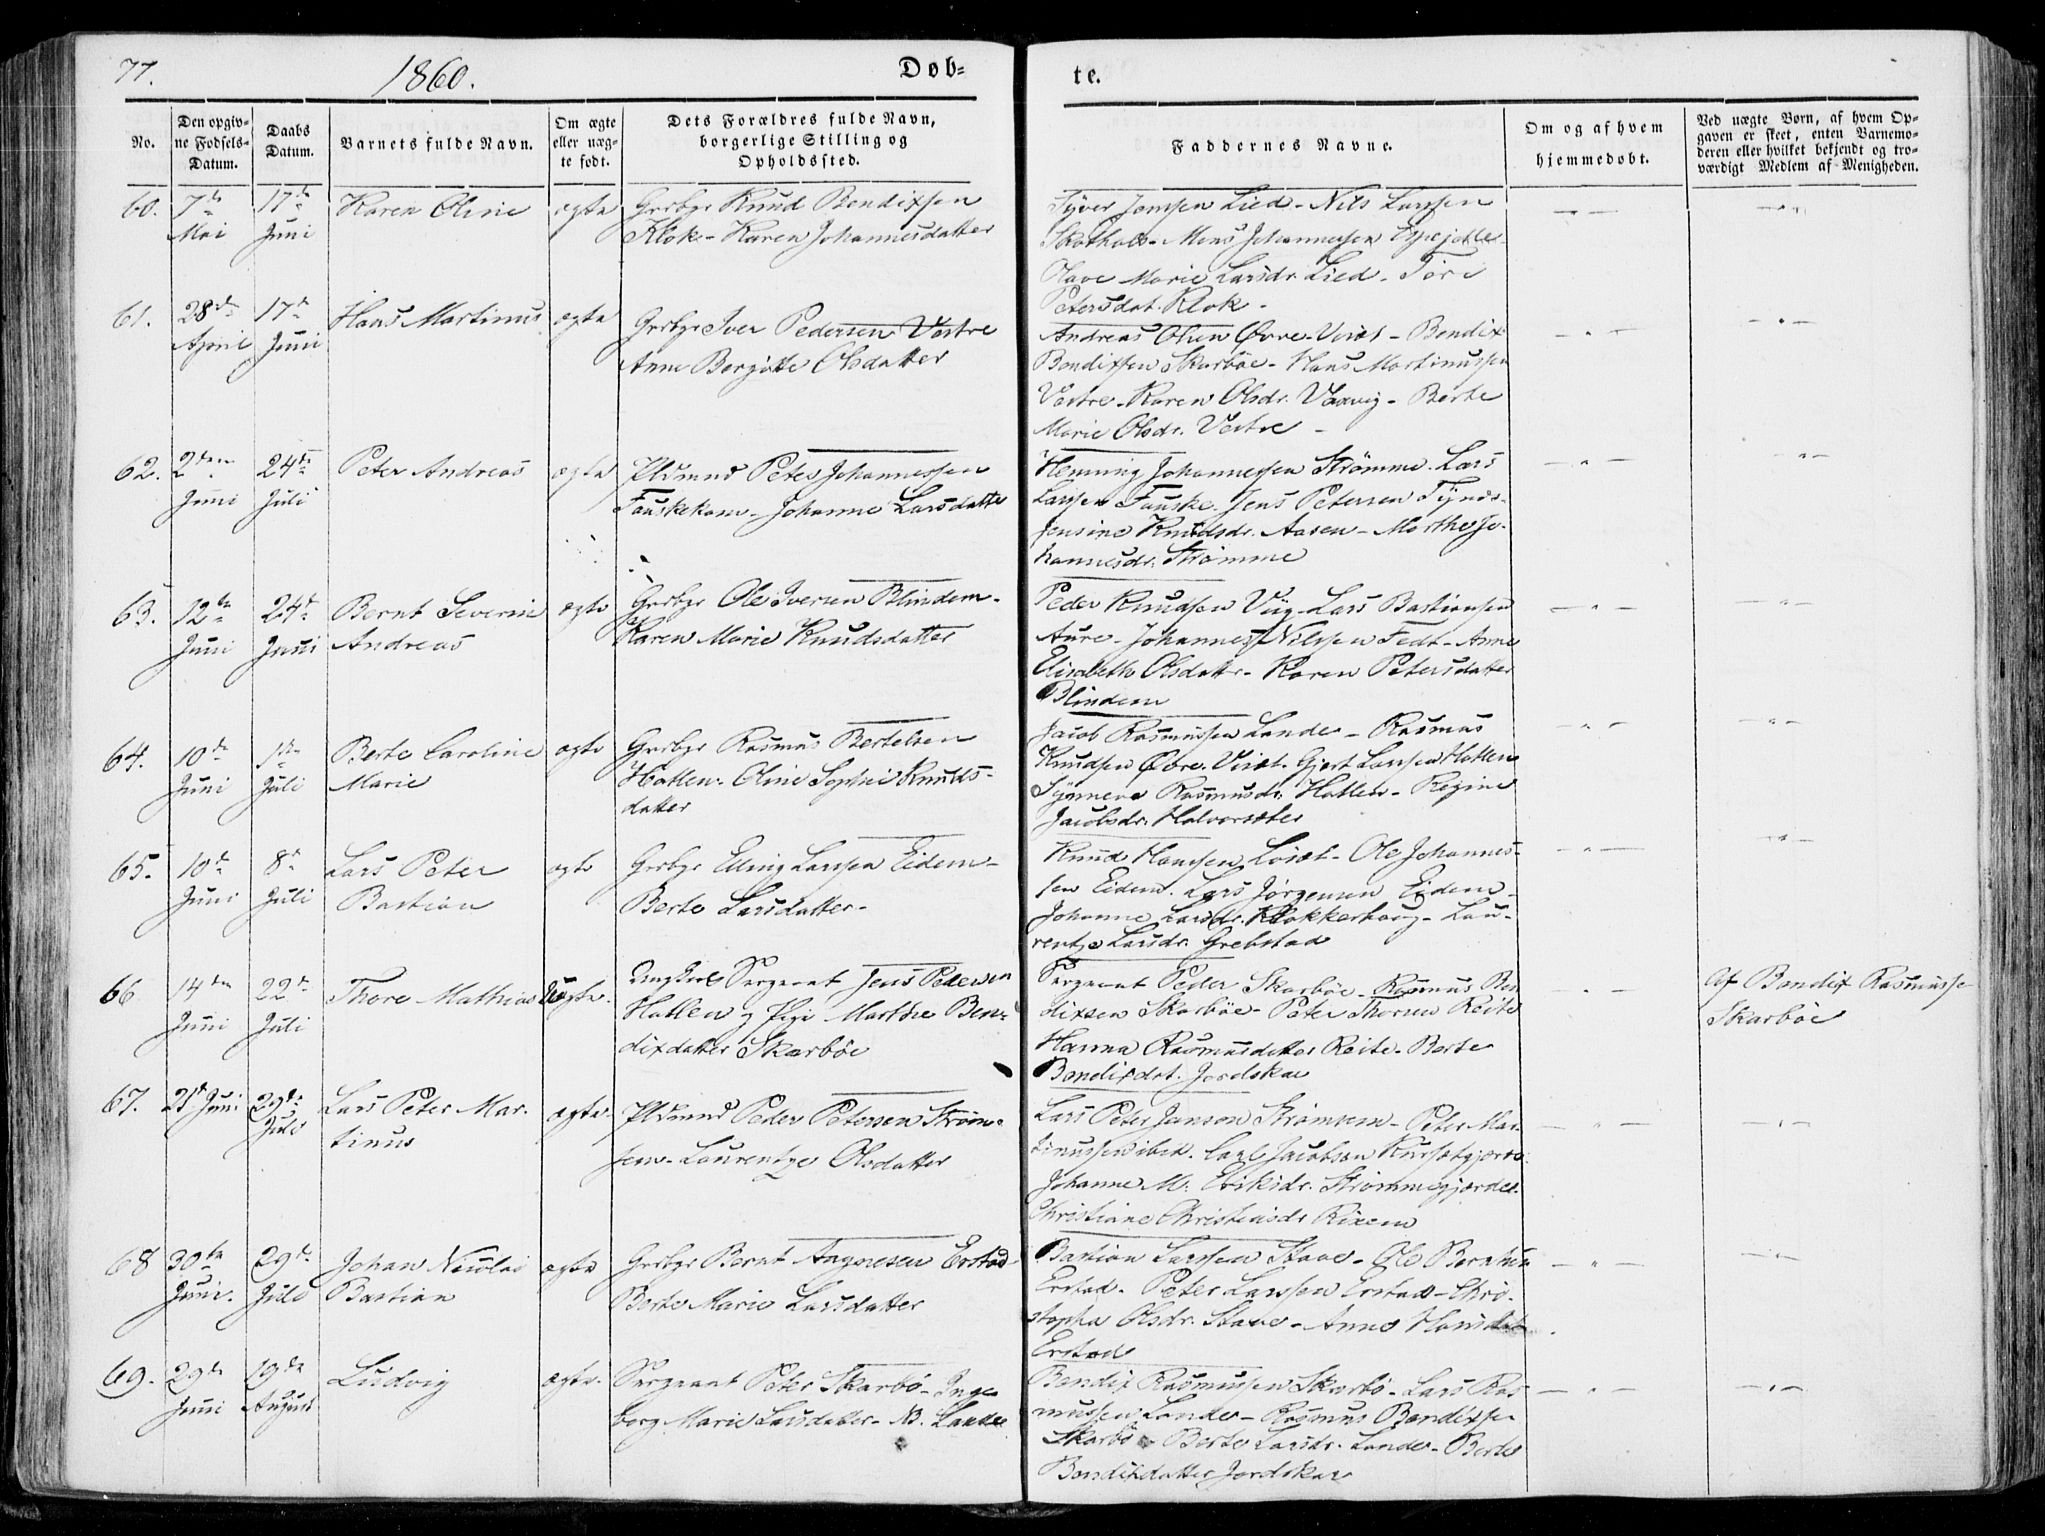 77. 1860. Døb-
te.
No.
Den opgiv-
ne Fødsels-
Datum.
Daabs
Datum.
Barnets fulde Navn.
Om ægte
eller uæg-
te født.
Dets Forældres fulde Navn,
borgerlige Stilling og
Opholdssted.
Faddernes Navne.
Om og af hvem
hjemmedøbt.
Ved uægte Børn, af hvem Op-
gaven er skeet, enten Barnemo-
deren eller hvilket bekjendt og tro-
værdigt Medlem af Menigheden.
60. 7de Mai 17de Juni Karen Oline ægte Grbgr Knud Bendixsen
Klok - Karen Johannesdatter
Syver Jonsen Lied - Nils Larssen
Skotholt - Mons Johannessen
Olave Marie Larsdr. Lied - Töri
Petersdat. Klok -
61. 28de April 17de Juni Hans Martinus ægte Grbgr Iver Pedersen Vestre
Anne Bergitte Olsdatter
Andreas Olsen Øvre-Viset - Bendix
Bendixsen Skarböe - Hans Martinussen
Vestre - Karen Olsdr. Vaxvig - Berte
Marie Olsdr. Vestre -
62. 2den Juni 24de Juli Peter Andreas ægte Plsmnd Peter Johannessen
Fauskekam - Johanne Larsdatter
Henning Johannessen Strömme. Lars
Larssen Fauske. Jens Petersen Tynes-
Jensine Knudsdr. Aasen - Marthe Jo-
hannesdr. Strömme
63. 12te Juni 24de Juni Bernt Severin
Andreas ægte Grbgr Ole Iversen Blindem -
Karen Marie Knudsdatter
Peder Knudsen Viig - Lars Bastiansen
Aure - Johannes Nilssen Fedt - Anne
Elisabeth Olsdatter - Karen Petersdatter
Blindem
64. 10de Juni 1ste Juli Berte Caroline
Marie ægte Grbgr Rasmus Bertelsen
Hatlen - Oline Sophie Knuds-
datter
Jacob Rasmussen Lande - Rasmus
Knudsen Øvre-Viset. Gjert Larssen Hatlen
Synneve Rasmusdr. Hatlen - Regine
Jacobsdr. Halvorsæter
65. 10de Juni 8de Juli Lars Peter
Bastian ægte Grbgr Elling Larssen Eidem -
Berte Larsdatter -
Knud Hansen Löset - Ole Johannes-
sen Eidem. Lars Jörgensen Eidem -
Johanne Larsdr. Klokkerhoug - Lau-
rentze Larsdr. Grebstad
66 14den Juni 22de Juli Thore Mathias Uægte. Ungkarl Sergeant Jens Pedersen
Hatlen og Pige Marthe Ben-
dixdatter Skarböe
Sergeant Peder Skarböe - Rasmus Ben
dixsen Skarböe - Peter Thorsen Reite
Hanna Rasmusdatter Reite - Berte
Bendixdat. Jordskar
Af Bendix Rasmusse
Skarböe
67. 21de Juni 29de Juli Lars Peter Mar-
tinus ægte. Plsmnd Peder Petersen Ström-
sem - Laurentze Olsdatter
Lars Peter Janson Strömsem - Peter Mar-
tinussen ibid. Carl Jacobsen
Johanne M. Eriksdr. Strömmegjerdet.
Christiane Christensdr. Rixem
68 30te Juni. 29de Juli Johan Nicolai
Bastian ægte Grbgr Bernt Erstad
Berte Marie Larsdatter
Bastian Larssen Stave - Ole Berntsen
Erstad. Peter Larssen Erstad - Chri-
stopha Olsdr. Stave - Anne Hansdat
Erstad
69. 29de Juni 19de August Ludvig ægte. Sergeant Peter Skarbö - Inge
borg Marie Larsdatter - N. Lande
Bendix Rasmussen Skarbö - Lars Ras-
mussen Lande - Rasmus Bendixsen
Skarbö - Berte Larsdr. Lande - Berte
Bendixdatter Jordskar